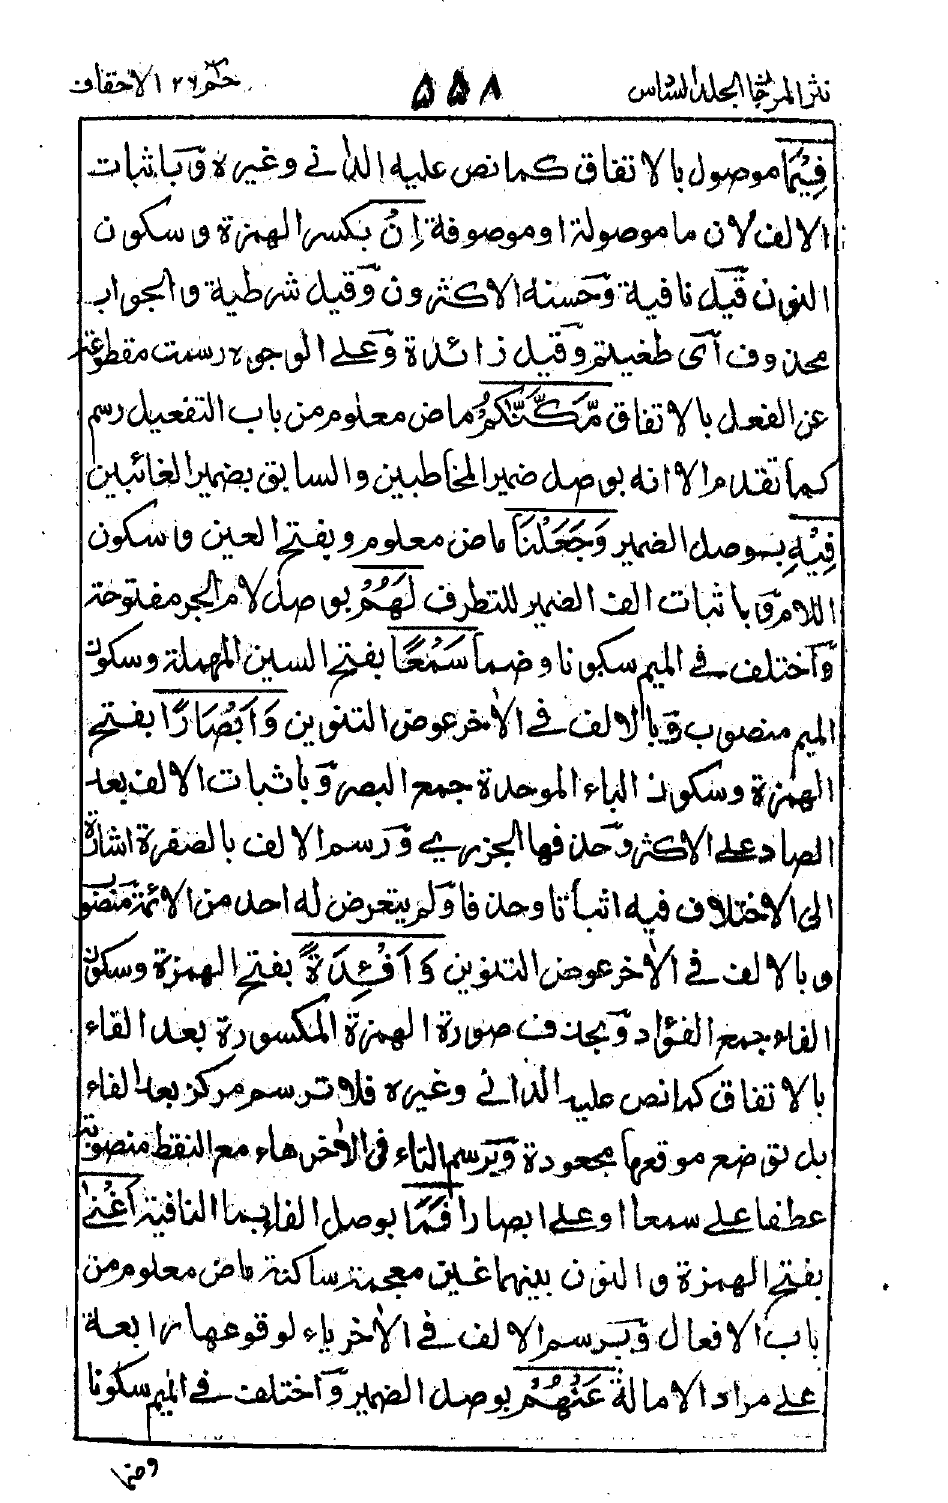 نثر المرجان الجلد السادس ۵۵۸ حٰم ٢٦ الاحقاف
فِيْمَا موصول بالاتفاق كما نص عليه الدانى وغيره وَباثبات
الالف لان ما موصولة او موصوفة اِنْ بكسر الهمزة وسكون
النون قَيل نافية وَحسنه الاكثرون وَقيل شرطية والجواب
محذوف اَى طغيتم وَقيل زائدة وَعلے الوجوه رسمت مقطوعة
عن الفعل بالاتفاق مَّكَّنّٰكُمْ ماض معلوم من باب التفعيل رسم
كما تقدم الا انه بوصل ضمير المخاطبين والسابق بضمير الغائبين
فِيْهِ بوصل الضمير وَجَعَلْنَا ماض معلوم وبفتح العين وسكون
اللام وَباثبات الف الضمير للتطرف لَهُمْ بوصل لام الجر مفتوحة
وَاختلف فے الميم سكونا وضما سَمْعًا بفتح السين المهملة وسكون
الميم منصوب وَبالالف فے الاٰخر عوض التنوين وَاَبْصَارًا بفتح
الهمزة وسكون الباء الموحدة جمع البصر وَباثبات الالف بعد
الصاد علے الاكثر وَحذفها الجزرى وَرسم الالف بالصفرة اشارة
الى الاختلاف فيه اثباتا وحذفا وَلم يتعرض له احد من الائمة منصوب
وبالالف فے الاٰخر عوض التنوين وَاَفْـِٕدَةً بفتح الهمزة وسكون
الفاء جمع الفؤاد وَبحذف صورة الهمزة المكسورة بعد الفاء
بالاتفاق كما نص عليه الدانى وغيره فلا ترسم مركز بعد الفاء
بل توضع موقعها مجعودة وَيرسم التاء فى الاٰخر هاء مع النقط منصوبة
عطفا على سمعا او على ابصارا فَمَا بوصل الفاء بما النافية اَغْنٰے
بفتح الهمزة والنون بينهما غين معجمة ساكنة ماض معلوم من
باب الافعال وَيرسم الالف فے الاٰخر ياء لوقوعها رابعة
علے مراد الامالة عَنْهُمْ بوصل الضمير وَاختلف فے الميم سكونا
وضما